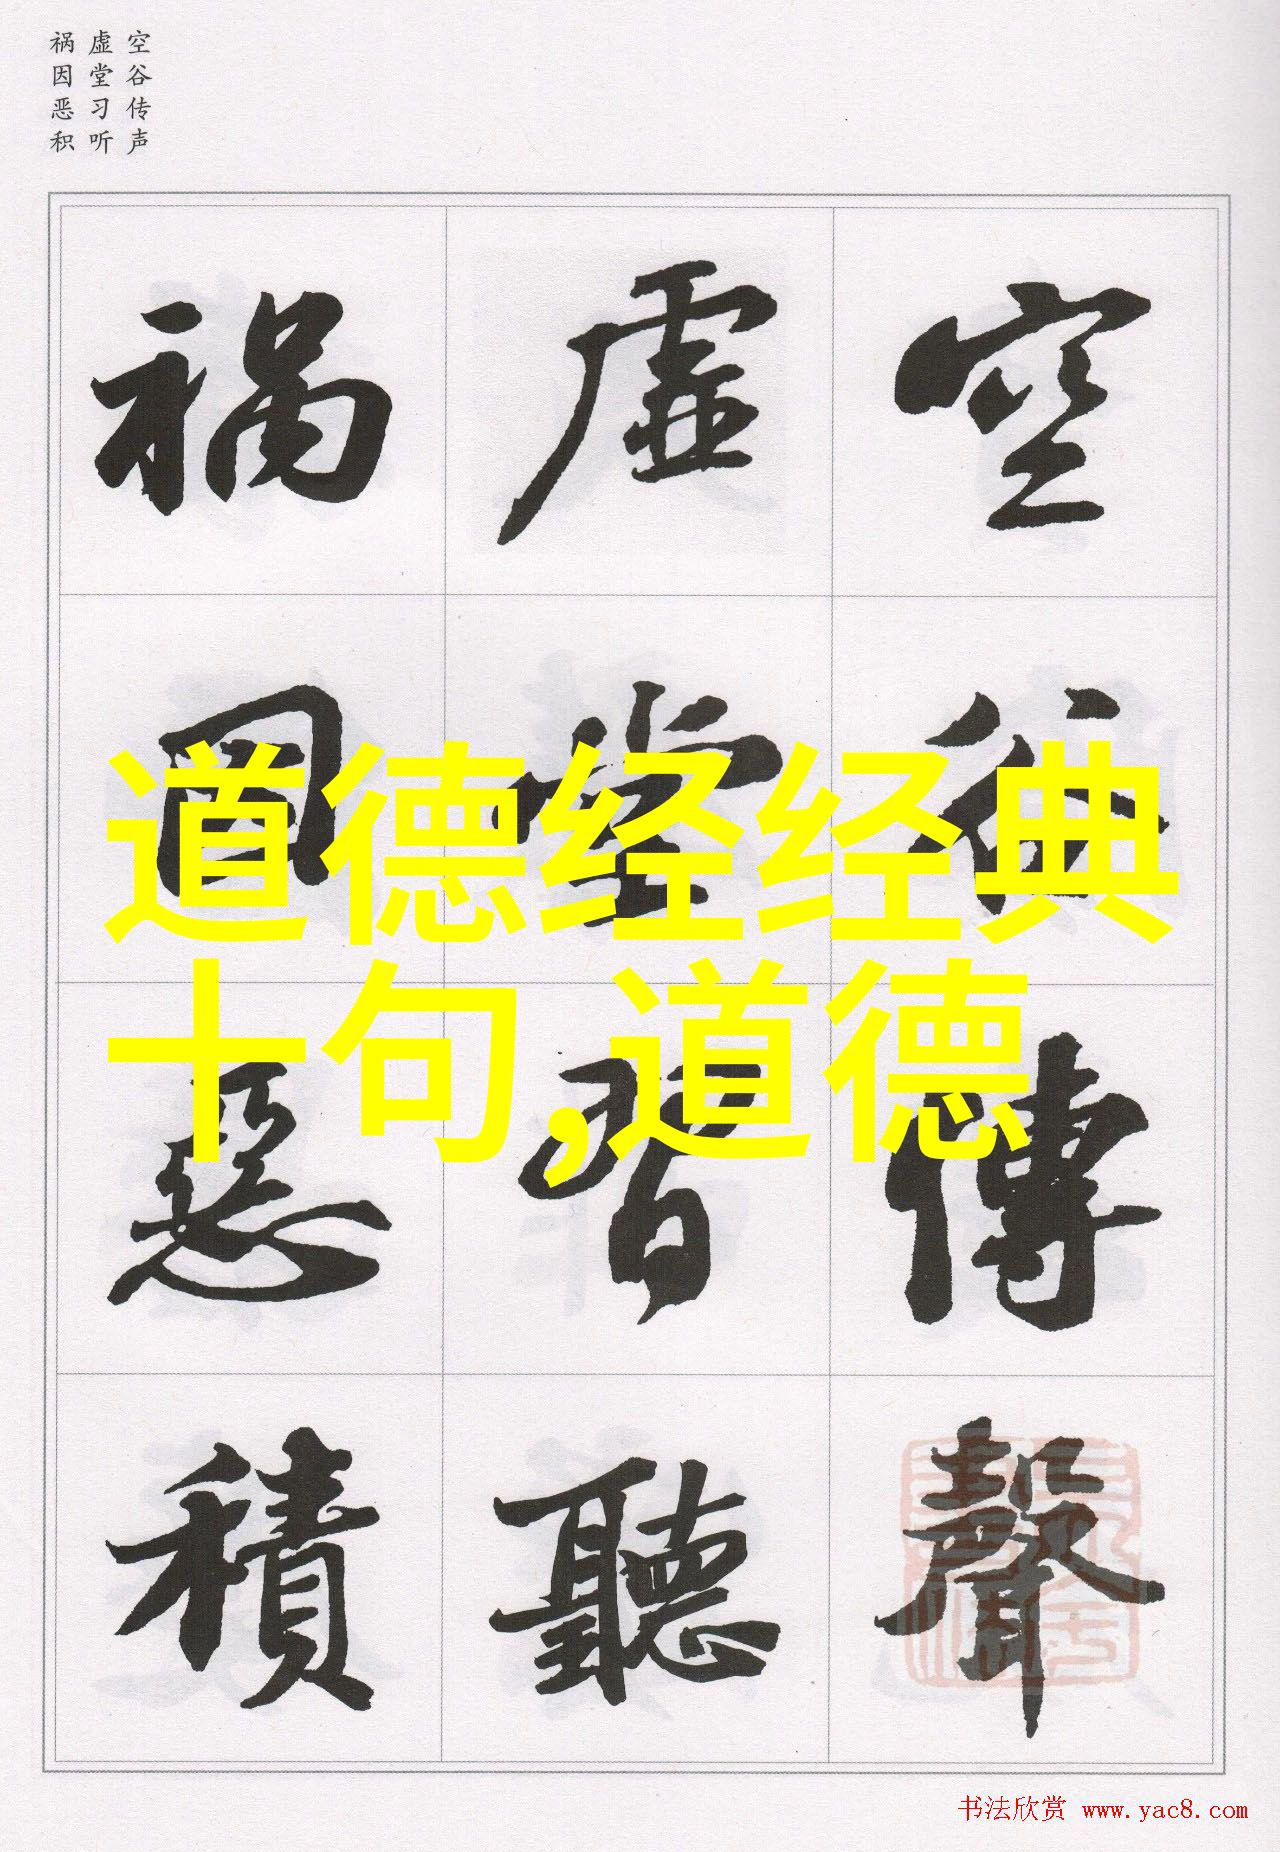 空谷传声
虚堂习听
祸因恶积
空谷傳聲
虛堂習聽
禍因惡積
道德经经典
十句,道德
书法欣赏 www.yac8.com